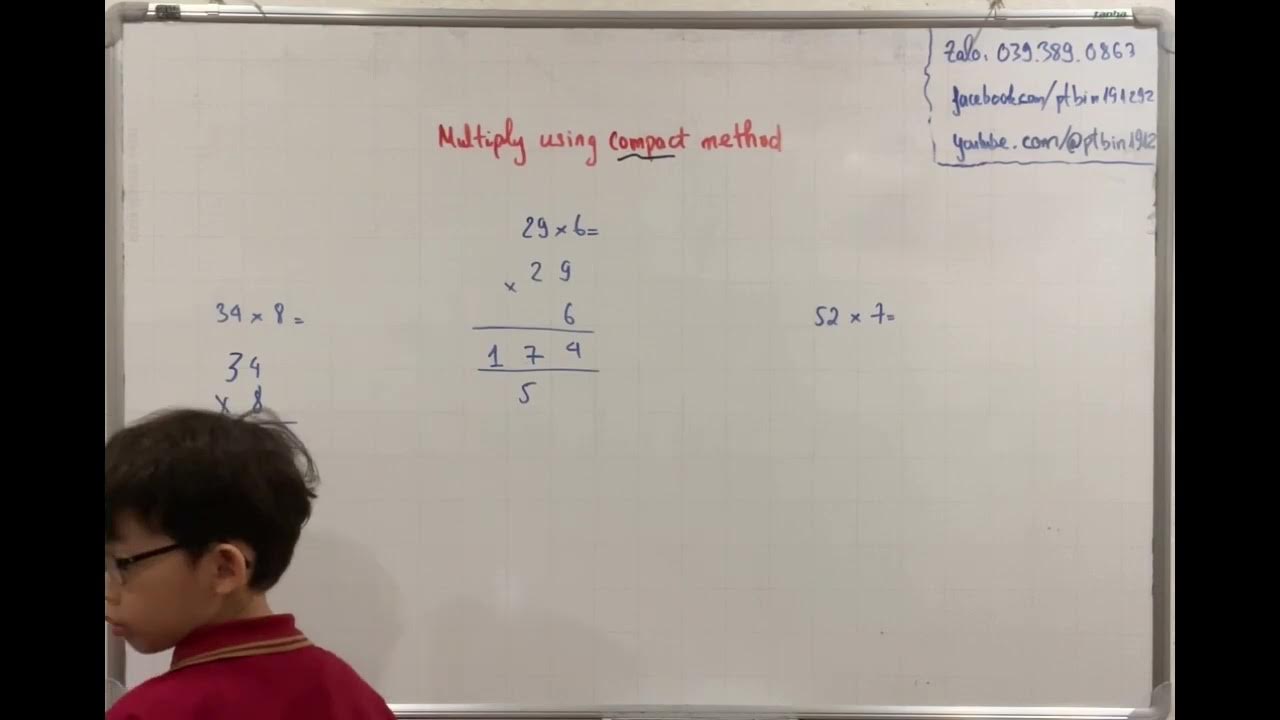 Zalo. 039.389.0863
facebook.com/ptbin191292
youtube.com/@ptbin1912
Multiply using compact method
29 × 6 =
× 2 9
6
1 7 4
5
34 × 8 =
34
× 8
52 × 7 =